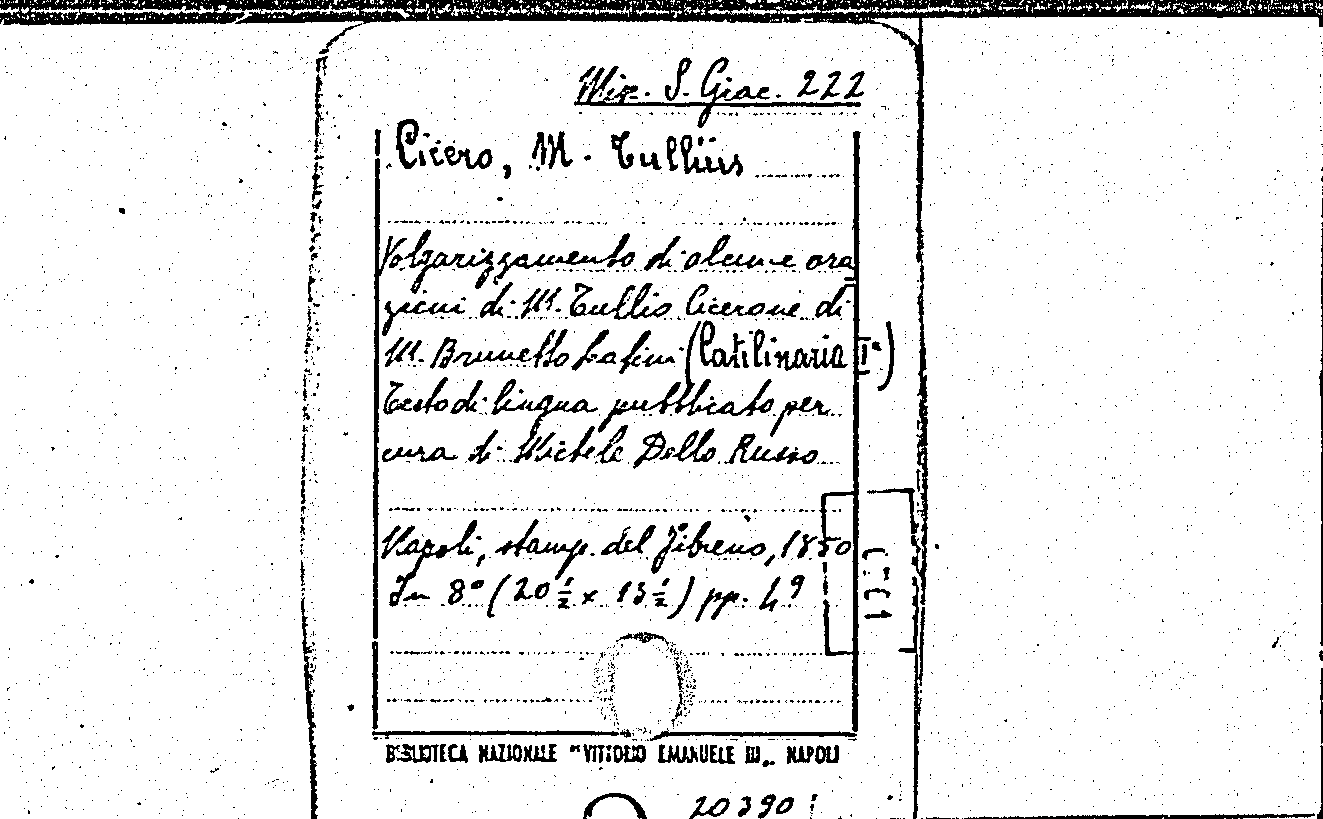 Misc. S. Giac. 222
Cicero, M. Tullius
Volgarizzamento di alcune ora
zioni di M. Tullio Cicerone di
M. Brunetto Latini (Catilinaria Iª)
Testo di lingua pubblicato per
cura di Michele Dello Russo
Napoli, stamp. del Fibreno, 1850
In 8° (20 ½ x 13 ½) pp. 49
BIBLIOTECA NAZIONALE "VITTORIO EMANUELE III„ NAPOLI
20390